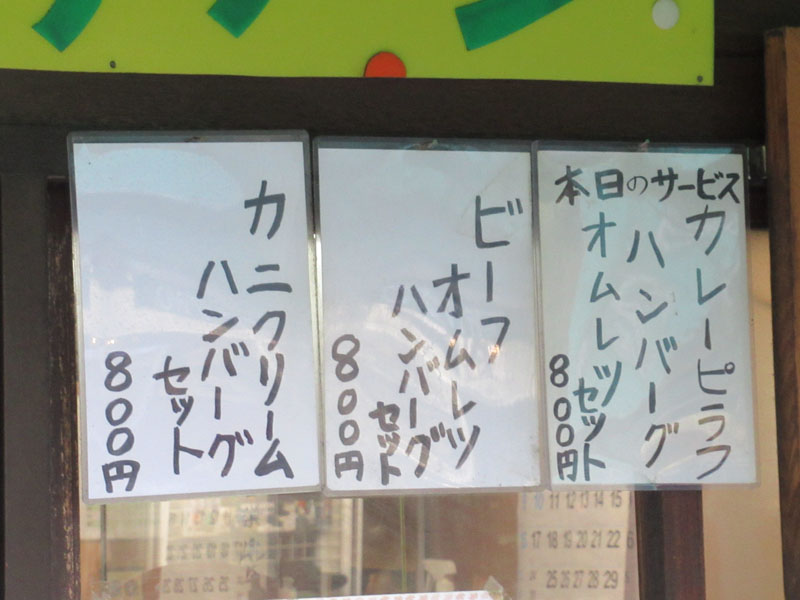 本日のサービス
カレーピラフ
ハンバーグ
オムレツセット
800円
ビーフ
オムレツ
ハンバーグ
セット
800円
カニクリーム
ハンバーグ
セット
800円
10 11 12 13 14 15
17 18 19 20 21 22
25 26 27 28 29